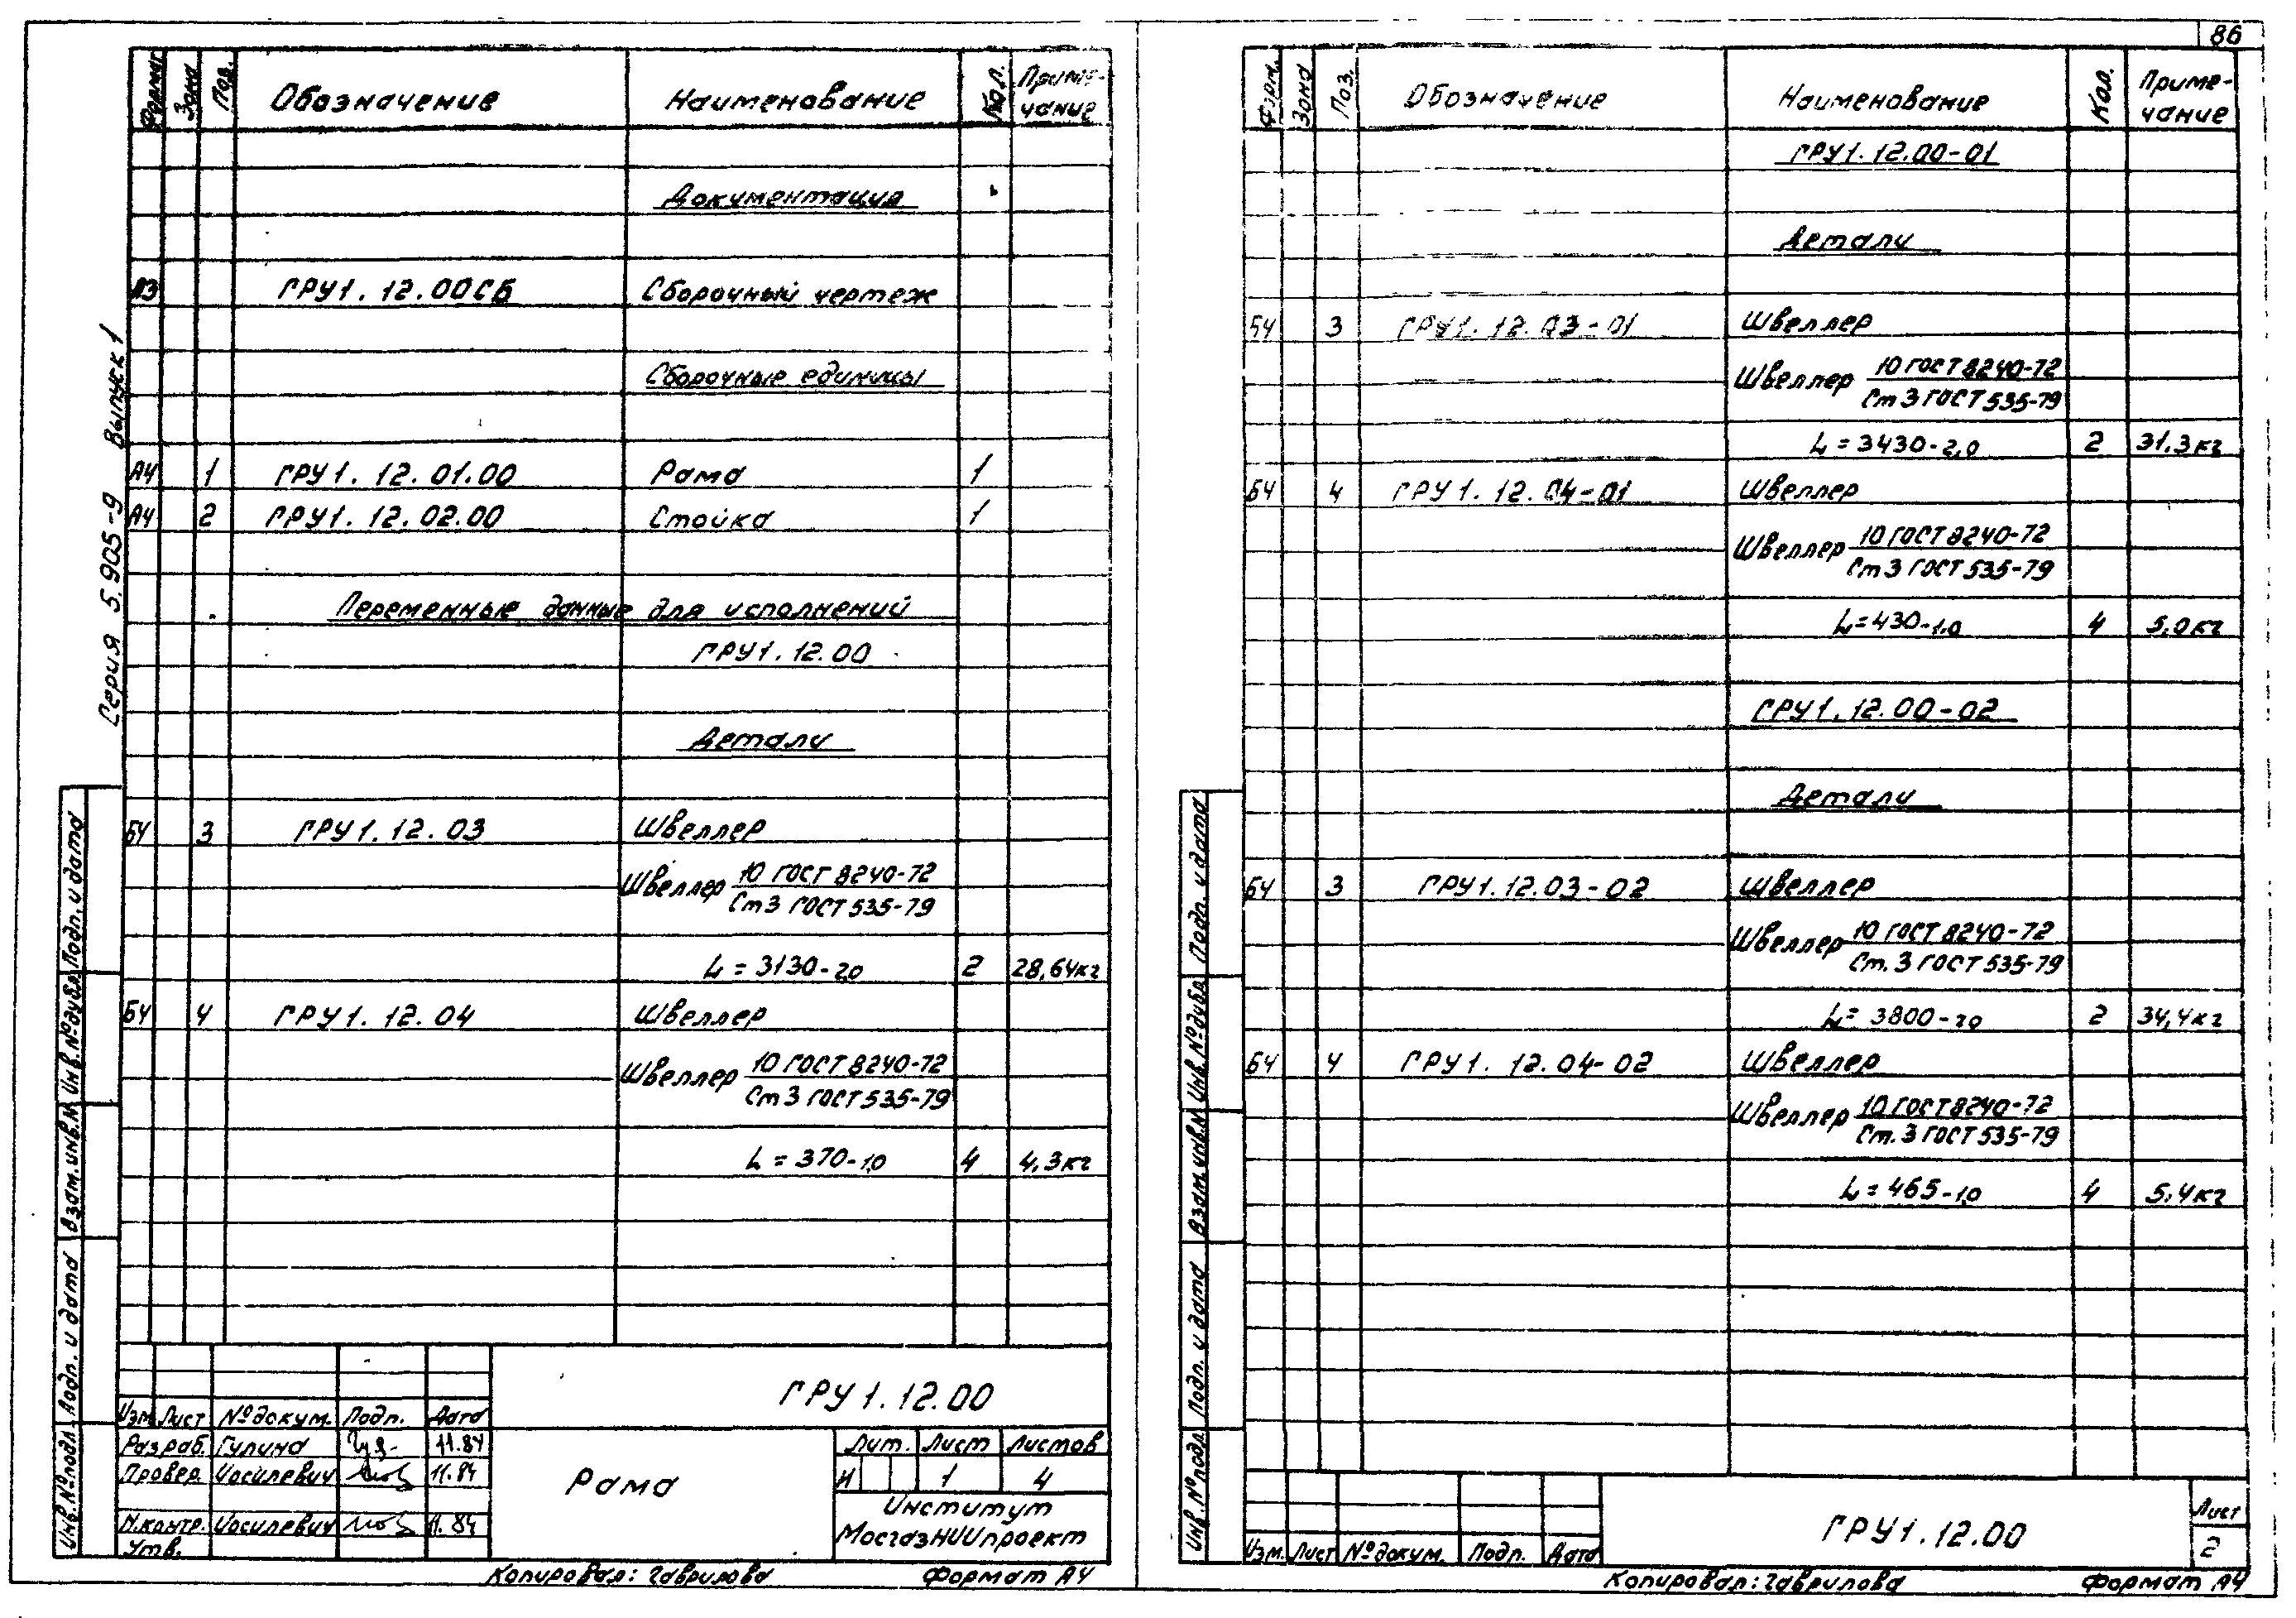 86
Серия 5.905-9 Выпуск 1
Формат Зона Поз. Обозначение Наименование Кол. Приме-
чание
Документация
А3 ГРУ1.12.00СБ Сборочный чертеж
Сборочные единицы
А4 1 ГРУ1.12.01.00 Рама 1
А4 2 ГРУ1.12.02.00 Стойка 1
Переменные данные для исполнений
ГРУ1.12.00
Детали
БЧ 3 ГРУ1.12.03 Швеллер
Швеллер 10 ГОСТ 8240-72
Ст3 ГОСТ 535-79
L = 3130-2,0 2 28,64кг
БЧ 4 ГРУ1.12.04 Швеллер
Швеллер 10 ГОСТ 8240-72
Ст3 ГОСТ 535-79
L = 370-1,0 4 4,3кг
Инв.№подл. Подп. и дата Взам.инв.№ Инв.№дубл. Подп. и дата
ГРУ1.12.00
Изм. Лист №докум. Подп. Дата
Разраб. Гулина 11.84
Провер. Иосилевич 11.84
Н.контр. Иосилевич 11.84
Утв.
Рама
Лит. Лист Листов
И 1 4
Институт
МосгазНИИпроект
Копировал: Гаврилова Формат А4
Форм. Зона Поз. Обозначение Наименование Кол. Приме-
чание
ГРУ1.12.00-01
Детали
БЧ 3 ГРУ1.12.03-01 Швеллер
Швеллер 10 ГОСТ 8240-72
Ст3 ГОСТ 535-79
L = 3430-2,0 2 31,3кг
БЧ 4 ГРУ1.12.04-01 Швеллер
Швеллер 10 ГОСТ 8240-72
Ст3 ГОСТ 535-79
L = 430-1,0 4 5,0кг
ГРУ1.12.00-02
Детали
БЧ 3 ГРУ1.12.03-02 Швеллер
Швеллер 10 ГОСТ 8240-72
Ст.3 ГОСТ 535-79
L = 3800-2,0 2 34,4кг
БЧ 4 ГРУ1.12.04-02 Швеллер
Швеллер 10 ГОСТ 8240-72
Ст.3 ГОСТ 535-79
L = 465-1,0 4 5,4кг
Инв.№подл. Подп. и дата Взам.инв.№ Инв.№дубл. Подп. и дата
Изм. Лист №докум. Подп. Дата
ГРУ1.12.00
Лист
2
Копировал: Гаврилова Формат А4